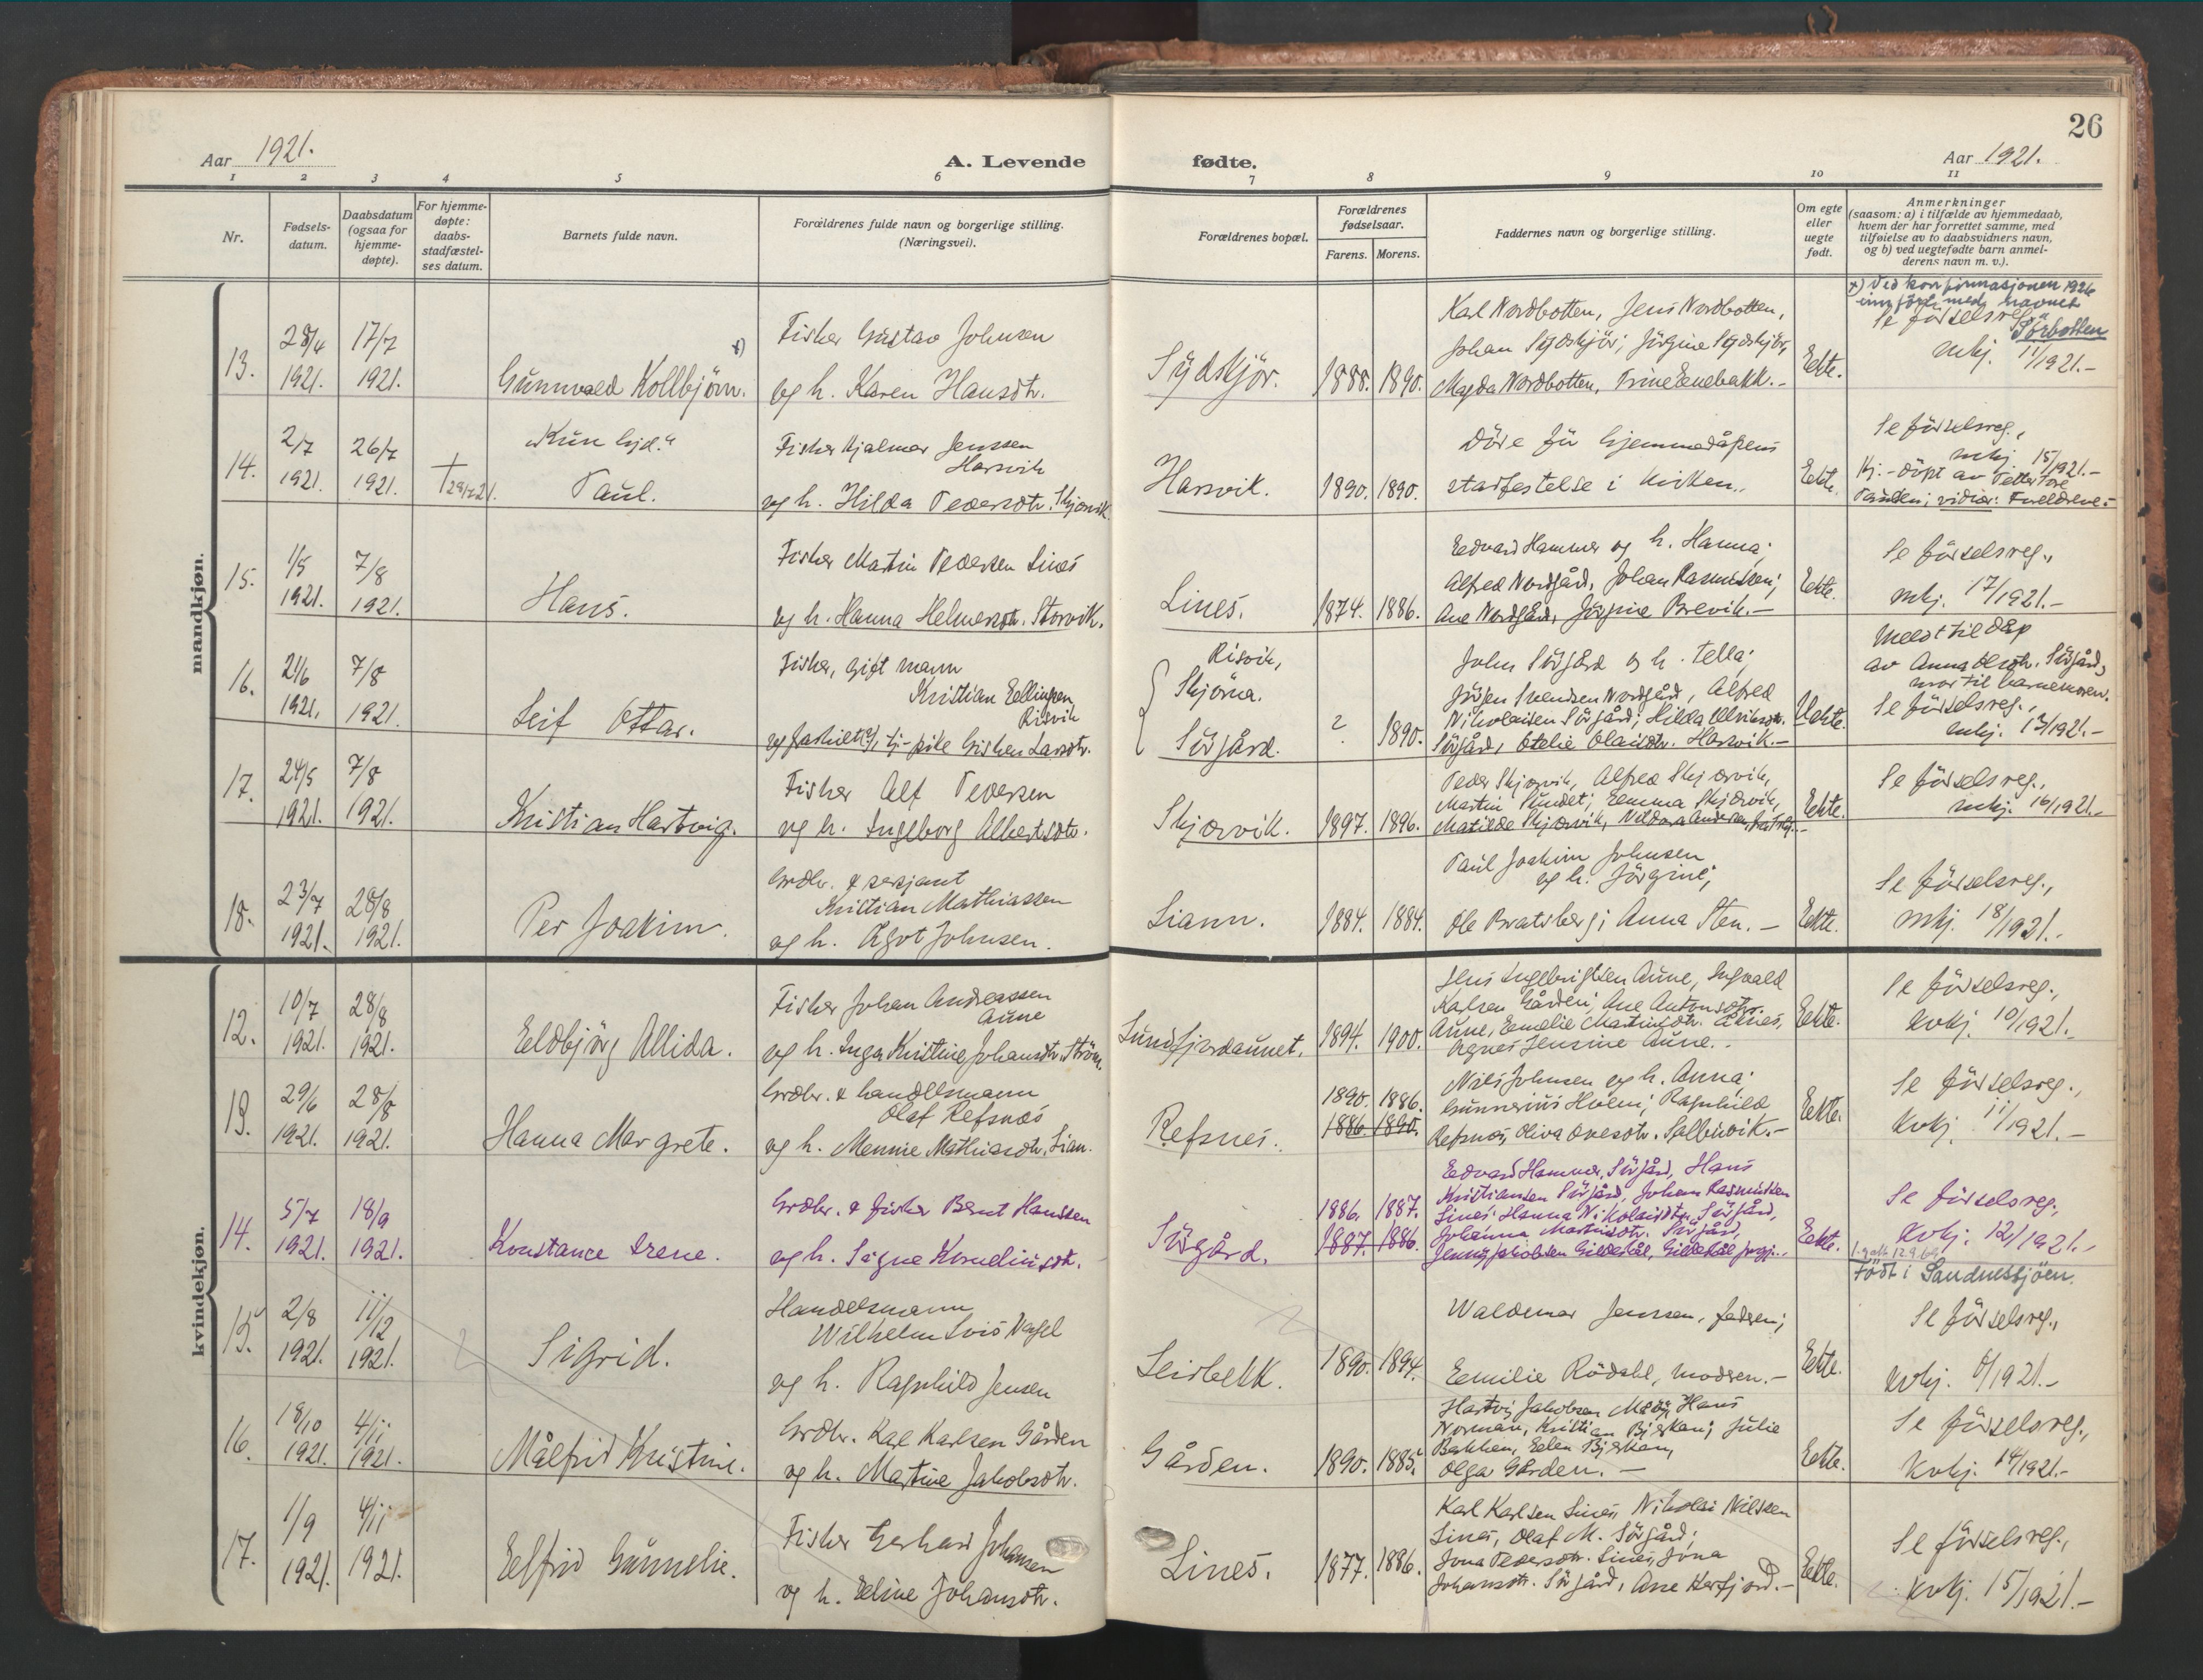 26
Aar 1921.
A. Levende fødte.
Aar 1921.
1 2 3 4 5 6 7 8 9 10 11
Nr.
Fødsels-
datum.
Daabsdatum
(ogsaa for
hjemme-
døpte).
For hjemme-
døpte:
daabs-
stadfæstel-
ses datum.
Barnets fulde navn.
Forældrenes fulde navn og borgerlige stilling.
(Næringsvei).
Forældrenes bopæl.
Forældrenes
fødselsaar.
Farens. Morens.
Faddernes navn og borgerlige stilling.
Om egte
eller
uegte
født.
Anmerkninger
(saasom: a) i tilfælde av hjemmedaab,
hvem der har forrettet samme, med
tilføielse av to daabsvidners navn,
og b) ved uegtefødte barn anmel-
derens navn m. v.).
mandkjøn.
13.
28/4
1921.
17/7
1921.
Gunnvald Kollbjörn. x)
Fisker Gustav Johnsen
og h. Karen Hansdtr.
Sydskjör.
1888. 1890.
Karl Nordbotten, Jens Nordbotten,
Johan Sydskjör; Jörgine Sydskjör,
Magda Nordbotten, Trine Enebakk.-
Ekte.
x) Ved konfirmasjonen 1926
innfört med navnet
Sörbotten
Se födselsreg.,
mkj. 11/1921.-
14.
2/7
1921.
26/7
1921.
† 29/7 21.
"Kun hjd."
Paul.
Fisker Hjalmar Jenssen
Harsvik
og h. Hilda Pedersdtr. Skjervik.
Harsvik.
1890. 1890.
Döde för hjemmedåpens
stadfestelse i kirken.
Ekte.
Se födselsreg.,
mkj. 15/1921.-
Hj.-döpt av Petter Tore
Paulsen; vidner: Foreldrene.-
15.
1/5
1921.
7/8
1921.
Hans.
Fisker Martin Pedersen Lines
og h. Hanna Helmersdtr. Storvik.
Lines.
1874. 1886.
Edvard Hammer og h. Hanna;
Alfred Nordgård, Johan Rasmussen;
Ane Nordgård, Jörgine Brevik.-
Ekte.
Se födselsreg.,
mkj. 17/1921.-
16.
21/6
1921.
7/8
1921.
Leif Ottar.
Fisker, gift mann
Kristian Ellingsen
Risvik
Risvik,
Skjörna.
Sörgård.
? 1890.
John Sörgård og h. Tella;
Jörgen Svendsen Nordgård, Alfred
Nikolaisen Sörgård; Hilda Ulriksdtr.
Sörgård, Otelie Olaisdtr. Harsvik.-
Uekte.
Meldt til dåp
av Anna Olsdtr. Sörgård,
mor til barnemoren.
Se födselsreg.,
mkj. 13/1921.-
17.
24/5
1921.
7/8
1921.
Kristian Hartvig.
Fisker Alf Pedersen
og h. Ingeborg Albertsdtr.
Skjervik.
1897. 1896.
Peder Skjervik, Alfred Skjervik,
Martin Sundet; Emma Skjervik,
Matilde Skjervik,
Ekte.
Se födselsreg.,
mkj. 16/1921.-
18.
23/7
1921.
28/8
1921.
Per Joakim.
Grdbr. & sersjant
Kristian Mathiassen
og h. Ågot Johnsen.
Liann.
1884. 1884.
Paul Joakim Johnsen
og h. Jörgine;
Ole Bratsberg; Anna Sten.-
Ekte.
Se födselsreg.,
mkj. 18/1921.-
kvindekjøn.
12.
10/7
1921.
28/8
1921.
Eldbjörg Allida.
Fisker Johan Andreassen
Aune
og h. Inga Kristine Johansdtr. Ström.
Sundfjordaunet.
1894. 1900.
Jens Ingebrigtsen Aune, Ingvald
Karlsen Gården; Ane Antonsdtr.
Aune, Emelie Martinsdtr. Aunes,
Agnes Jensine Aune.-
Ekte.
Se födselsreg.,
kvkj. 10/1921.-
13.
29/6
1921.
28/8
1921.
Hanna Margrete.
Grdbr. & handelsmann
Olaf Refsnes
og h. Mennie Mathiasdtr. Lian.
Refsnes.
1890. 1886.
1886. 1890.
Nils Johnsen og h. Anna;
Gunnerius Holm; Ragnhild
Refsnes, Oliva Ovesdtr. Salbuvik.-
Ekte.
Se födselsreg.,
kvkj. 11/1921.-
14.
5/7
1921.
18/9
1921.
Konstance Irene.
Grdbr. & fisker Bernt Hanssen
og h. Signe Korneliusdt.
Sörgård.
1886. 1887.
1887. 1886.
Edvard Hammer, Sörgård, Hans
Kristiansen Sörgård, Johan Rasmussen
Lines; Hanna Nikolaisdtr. Sörgård,
Johanna Martinsdtr. Sörgård,
Jenny Jakobsen Gildeskål,
Ekte.
Se födselsreg.,
kvkj. 12/1921.-
15.
2/8
1921.
11/12
1921.
Sigrid.
Handelsmann
Wilhelm Lvis Nagel
og h. Ragnhild Jensen
Leirbekk.
1890. 1894.
Waldemar Jenssen, fadren;
Emilie Rödahl, modren.-
Ekte.
Födt i Sandnessjöen.
Se födselsreg.,
kvkj. 6/1921.-
16.
18/10
1921.
4/11
1921.
Målfrid Kristine.
Grdbr. Karl Karlsen Gården
og h. Martine Jakobsdtr.
Gården.
1890. 1885.
Hartvig Jakobsen Hans
Norman, Kristian Bjerkan; Julie
Bakken, Ellen Bjerkan,
Olga Gården.-
Ekte.
Se födselsreg.,
kvkj. 14/1921.-
17.
1/9
1921.
4/11
1921.
Elfrid Gunnelie.
Fisker Gerhard Johansen
og h. Eline Johansdtr.
Lines.
1877. 1886.
Karl Karlsen Lines, Nikolai Nilssen
Lines, Olaf M. Sörgård;
Jona Pedersdtr. Lines, Jona
Johansdtr. Sörgård, Ane Herfjord.-
Ekte.
Se födselsreg.,
kvkj. 15/1921.-